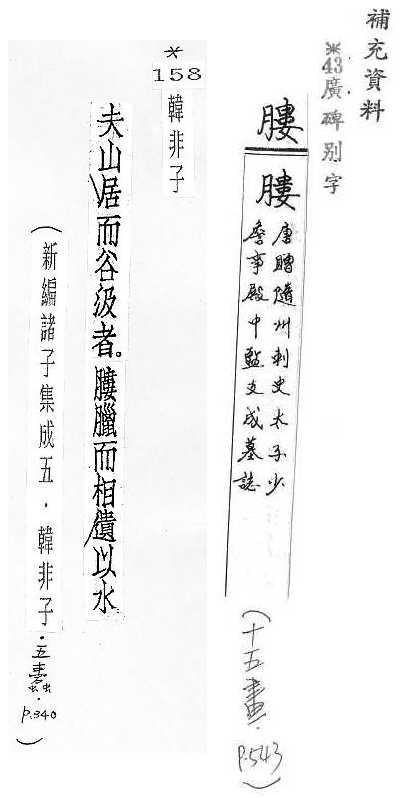 補充資料
※43廣碑別字
膢
膢
唐贈隨州刺史太子少
詹事殿中監支成墓誌
(十五畫.P.543)
※
158
韓非子
夫山居而谷汲者。膢臘而相遺以水
(新編諸子集成五.韓非子.五蠹.P.340)